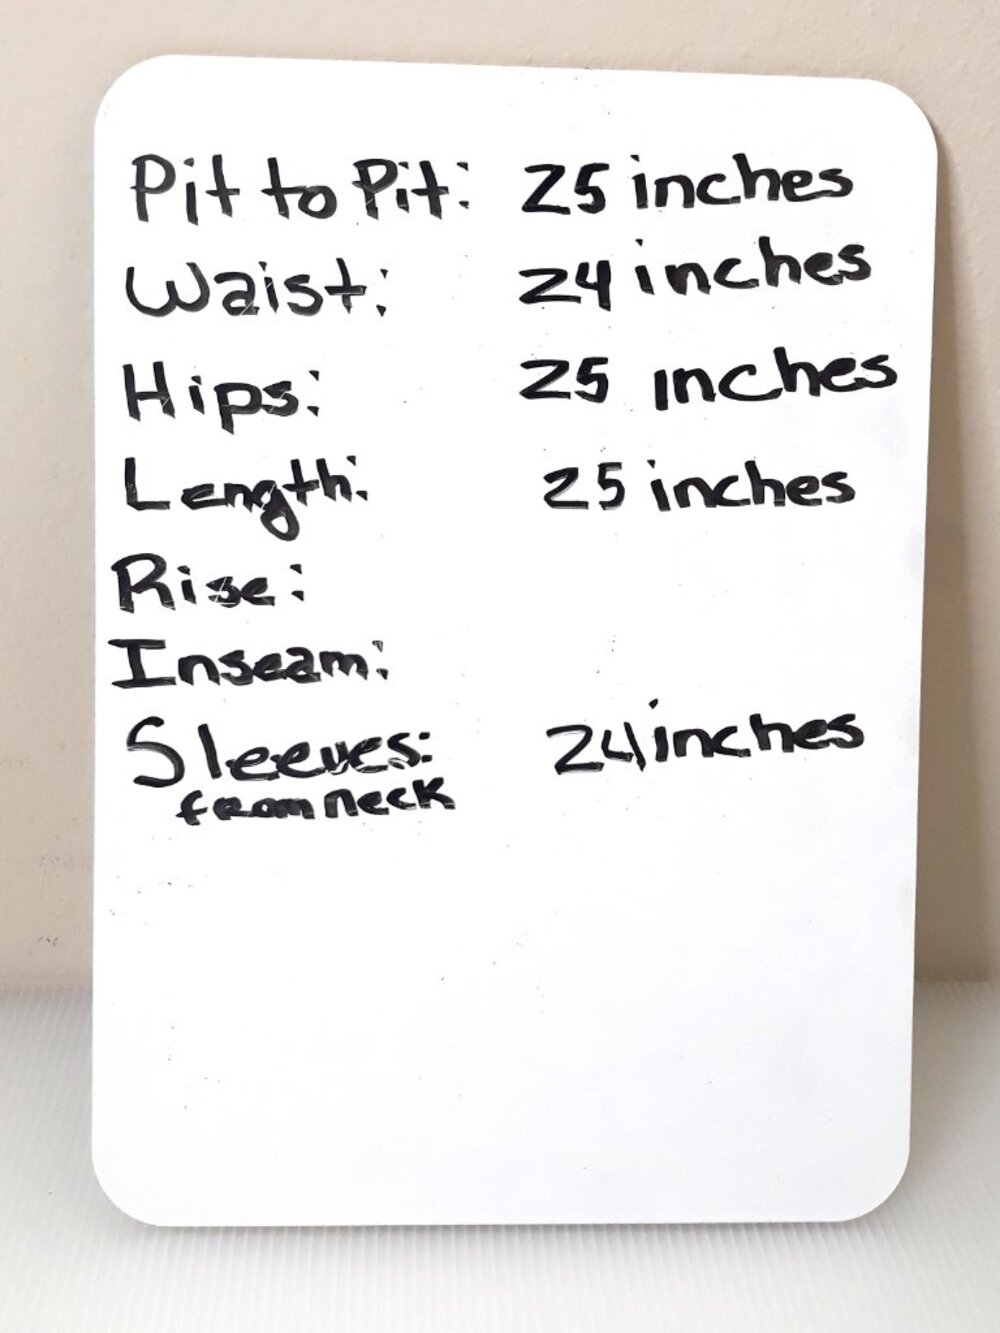 Pit to Pit: 25 inches
Waist: 24 inches
Hips: 25 inches
Length: 25 inches
Rise:
Inseam:
Sleeves: 24 inches
from neck